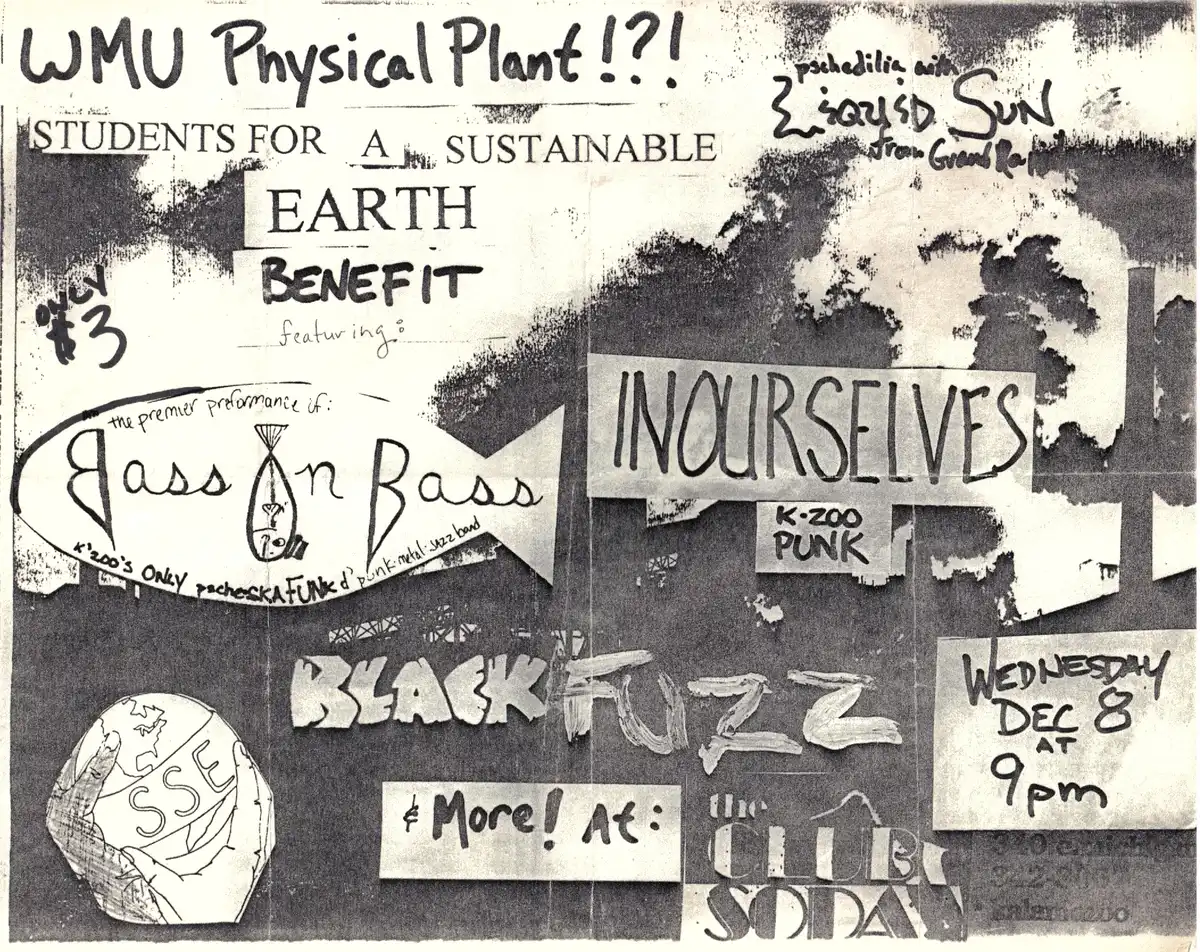 WMU Physical Plant!?!
pschedilia with
Liquid SUN
from Grand Rapids
STUDENTS FOR A SUSTAINABLE
EARTH
BENEFIT
featuring:
ONLY
$3
the premier preformance of:
Bass On Bass
K'zoo's ONLY pscheSKAFUNK d' punk-metal-jazz band
INOURSELVES
K-ZOO
PUNK
BLACK FUZZ
WEDNESDAY
DEC 8
AT
9pm
SSE
& More! At:
the
CLUB
SODA
340
kalamazoo